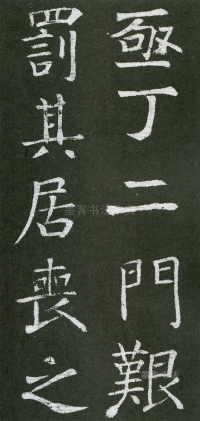 亟丁二門艱
罰其居喪之